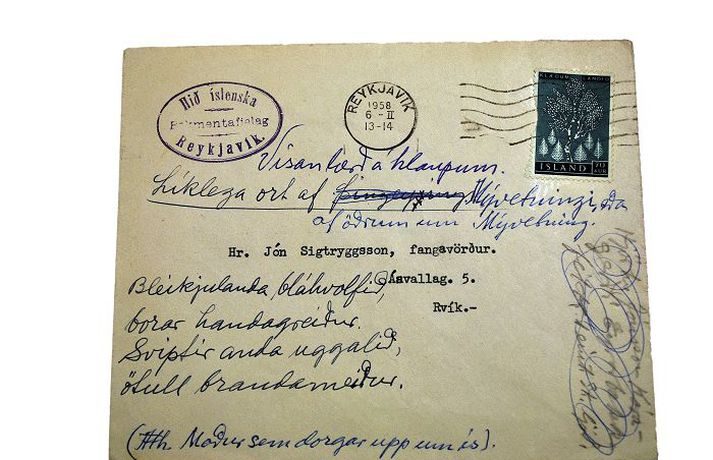 Hið íslenska
Bókmentafjelag
Reykjavík.
REYKJAVIK
1958
6 - II
13-14
KLÆÐUM LANDIÐ
ÍSLAND 70
AUR
Vísan lærð á hlaupum.
Líklega ort af Mývetningi, eða
af öðrum um Mývetning.
Hr. Jón Sigtryggsson, fangavörður.
Ásvallag. 5.
Rvík.-
Bleikjulanda, bláhvolfið,
borar handagreiður.
Sviptir anda uggalið,
ötull brandameiður.
(Ath. Maður sem dorgar upp um ís).